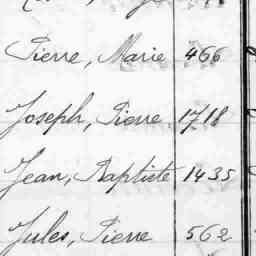 Pierre, Marie 466
Joseph, Pierre 1718
Jean, Baptiste 1435
Jules, Pierre 562